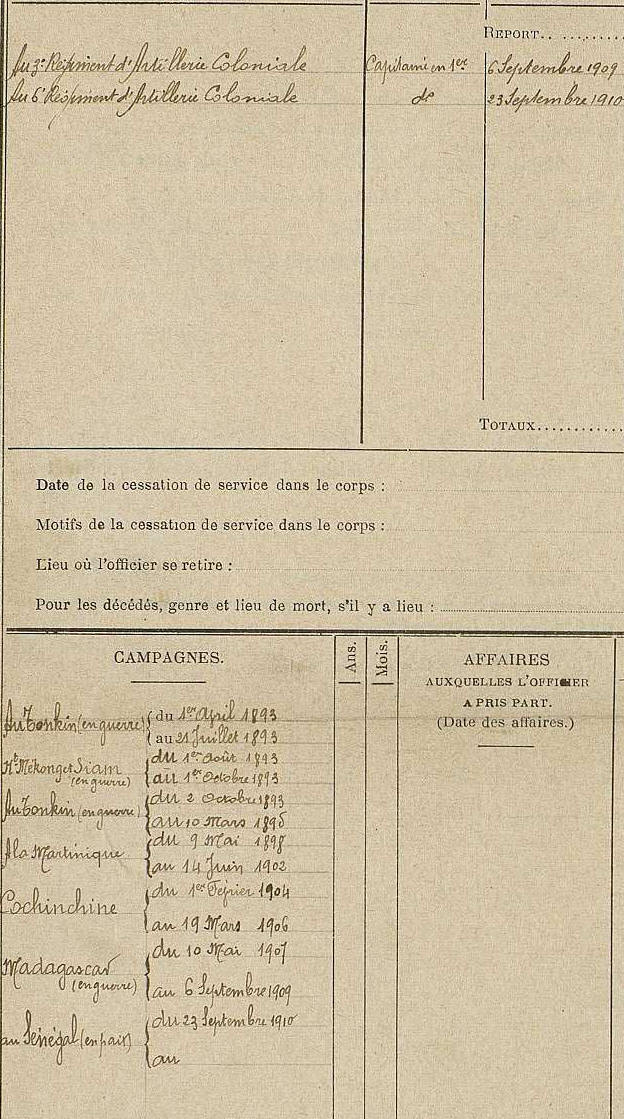 REPORT..
Au 3e Régiment d'Artillerie Coloniale Capitaine en 1er 6 Septembre 1909
Au 6e Régiment d'Artillerie Coloniale do 23 Septembre 1910
TOTAUX
Date de la cessation de service dans le corps :
Motifs de la cessation de service dans le corps :
Lieu où l'officier se retire :
Pour les décédés, genre et lieu de mort, s'il y a lieu :
CAMPAGNES.
Ans.
Mois.
AFFAIRES
AUXQUELLES L'OFFICIER
A PRIS PART.
(Date des affaires.)
Au Tonkin (en guerre) du 1er April 1893
au 21 Juillet 1893
Ht Mékong et Siam (en guerre) du 1er Août 1893
au 1er Octobre 1893
Au Tonkin (en guerre) du 2 Octobre 1893
au 10 Mars 1895
A la Martinique du 9 Mai 1898
au 14 Juin 1902
Cochinchine du 1er Février 1904
au 19 Mars 1906
Madagascar (en guerre) du 10 Mai 1907
au 6 Septembre 1909
au Sénégal (en paix) du 23 Septembre 1910
au